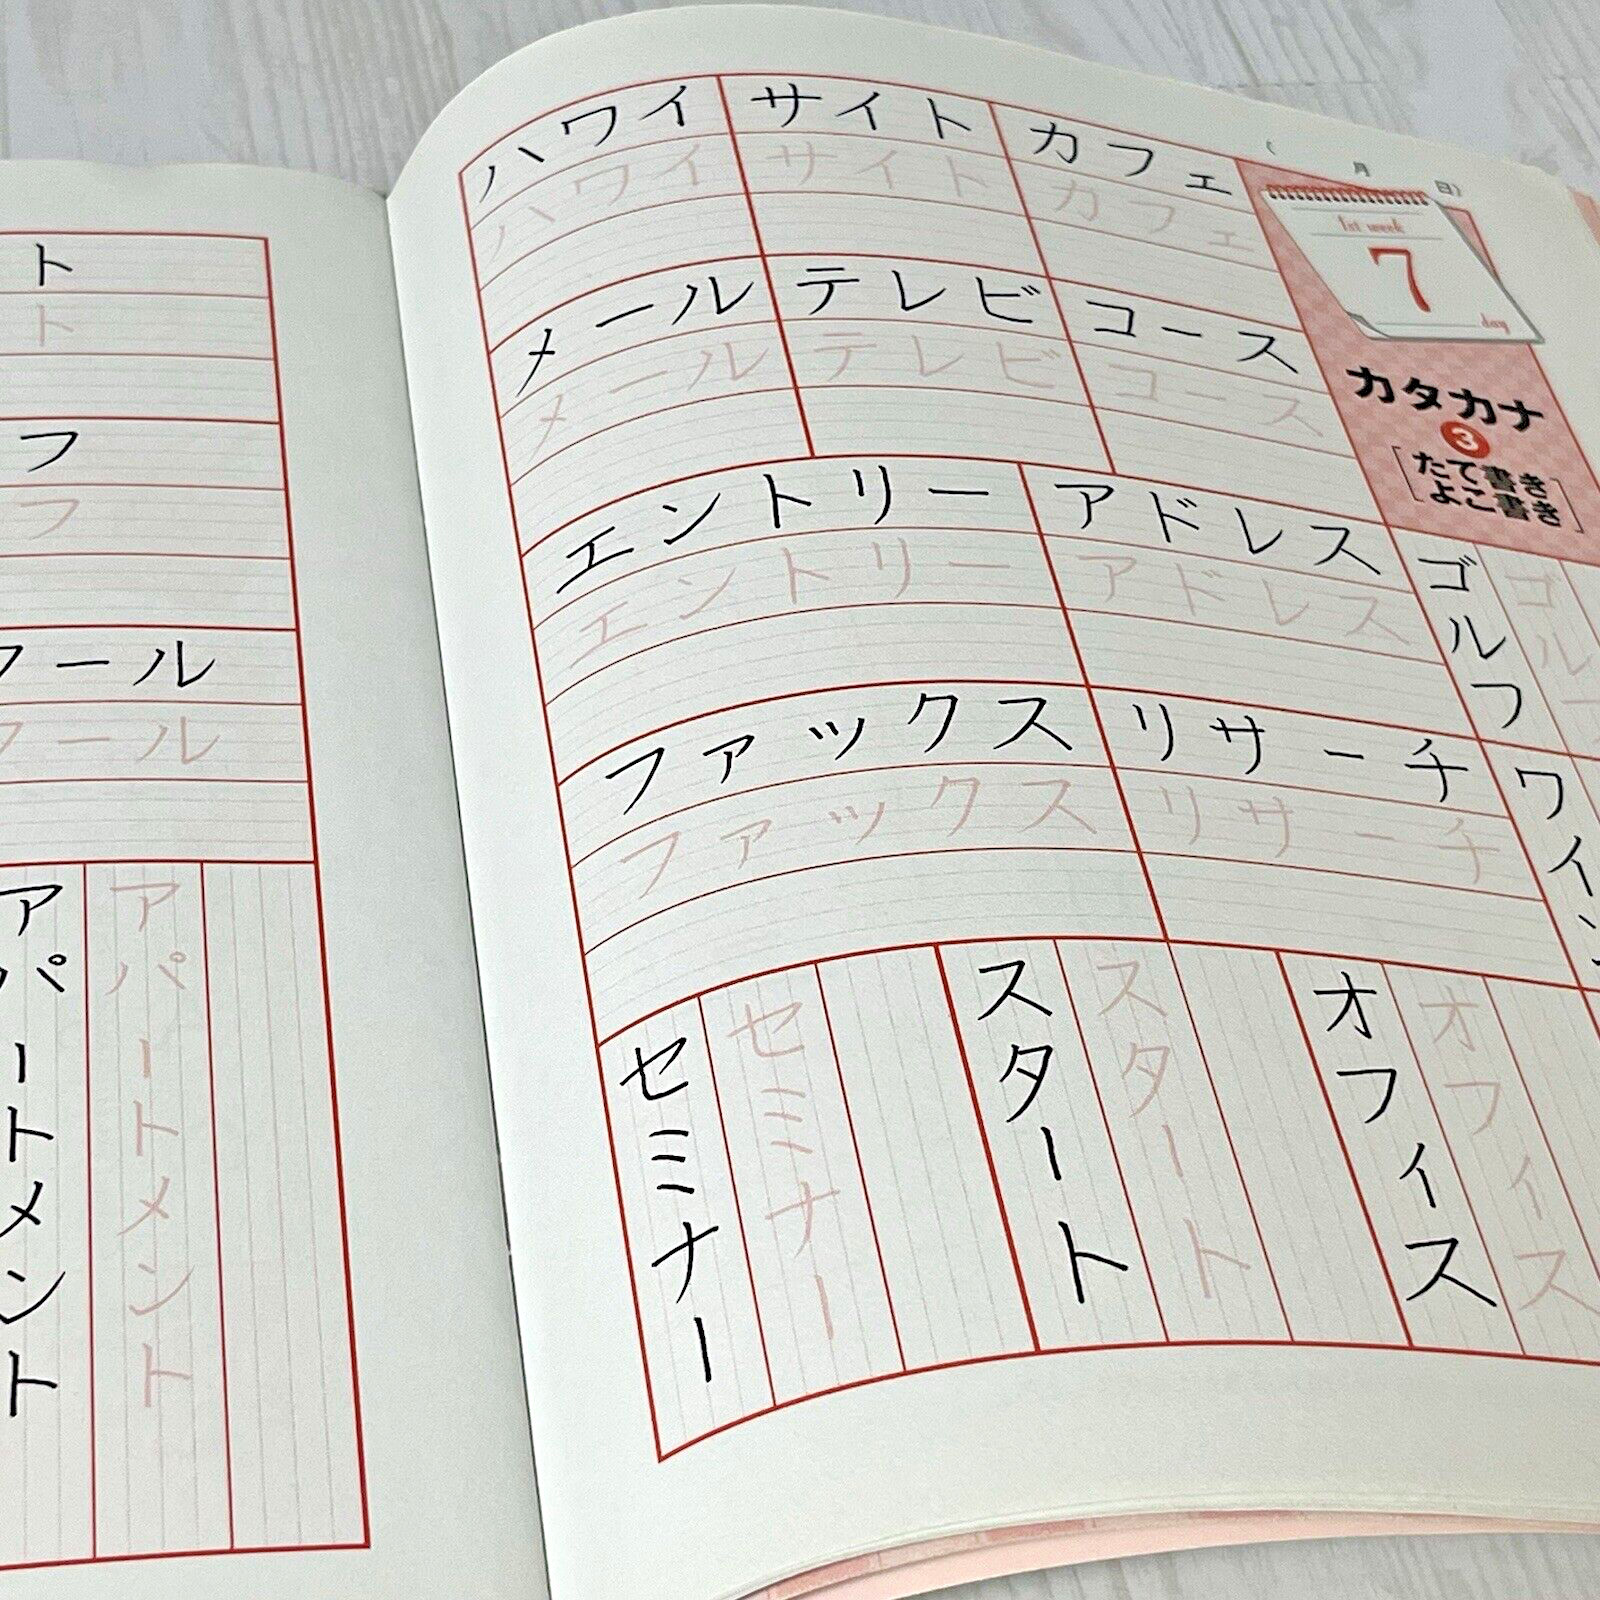 ト
ト
フ
フ
ール
ール
アパートメント
アパートメント
( 月 日)
1st week
7
day
カタカナ
3
[たて書き
よこ書き]
ハワイ サイト カフェ
ハワイ サイト カフェ
メール テレビ コース
メール テレビ コース
エントリー アドレス
エントリー アドレス
ファックス リサーチ
ファックス リサーチ
ゴルフ
ゴルフ
ワイン
オフィス
オフィス
スタート
スタート
セミナー
セミナー